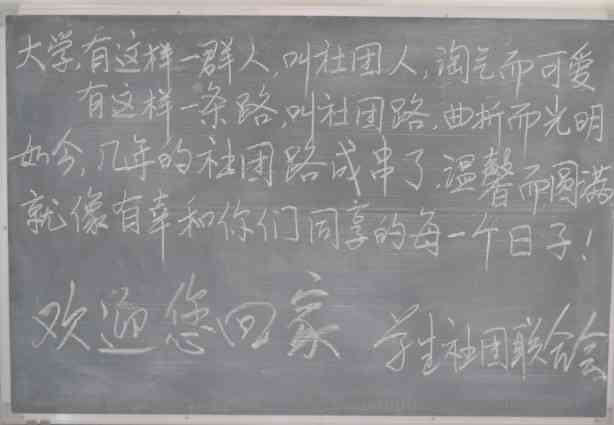 大学,有这样一群人,叫社团人,淘气而可爱
有这样一条路,叫社团路,曲折而光明
如今,几年的社团路成串了,温馨而圆满
就像有幸和你们同享的每一个日子!
欢迎您回家 学生社团联合会